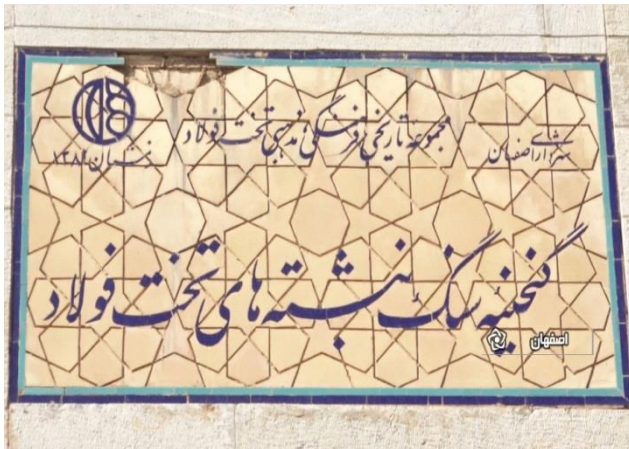 شهرداری اصفهان
مجموعه تاریخی، فرهنگی و مذهبی تخت فولاد
زمستان ۱۳۸۲
گنجینه سنگ نبشته های تخت فولاد
اصفهان